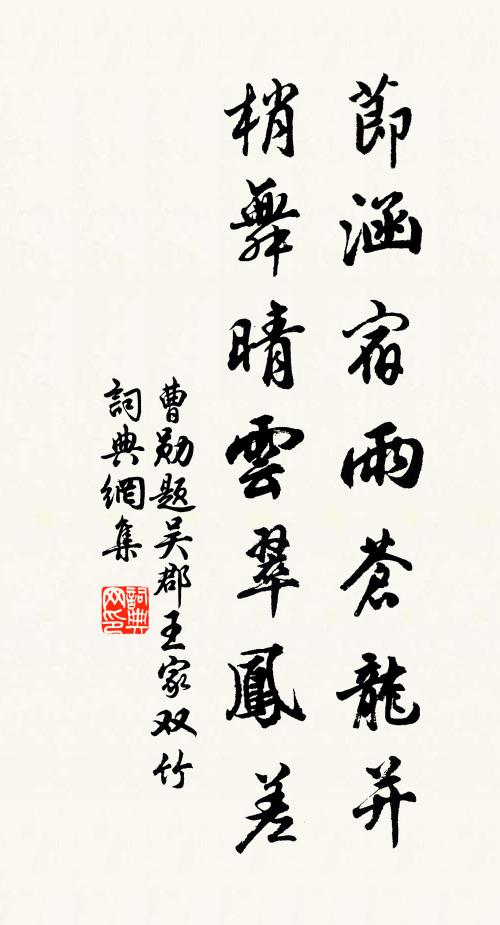 節涵宿雨蒼龍并
梢舞晴雲翠鳳差
曹勛題吴郡王家双竹
詞典網集
詞典网印